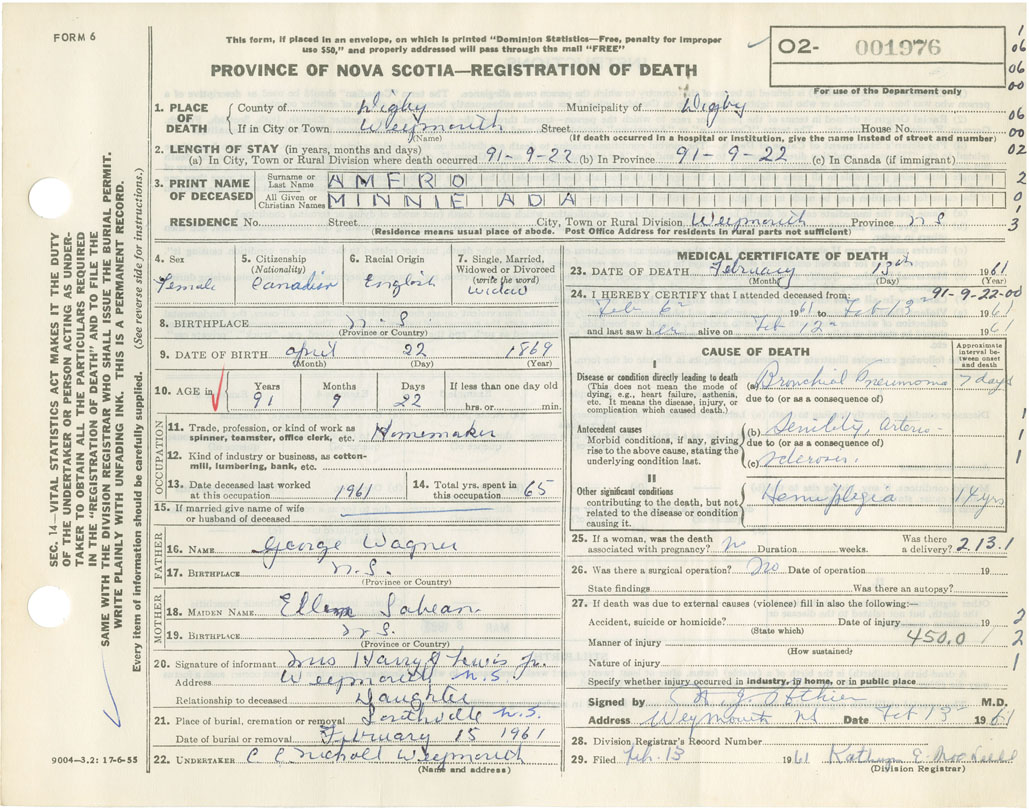 FORM 6
This form, if placed in an envelope, on which is printed "Dominion Statistics—Free, penalty for improper
use $50," and properly addressed will pass through the mail "FREE"
PROVINCE OF NOVA SCOTIA—REGISTRATION OF DEATH
O2- 001976
For use of the Department only
1. PLACE OF DEATH
County of Digby Municipality of Digby
If in City or Town Weymouth Street House No.
(Name) (If death occurred in a hospital or institution, give the name instead of street and number)
2. LENGTH OF STAY (in years, months and days)
(a) In City, Town or Rural Division where death occurred 91-9-22 (b) In Province 91-9-22 (c) In Canada (if immigrant)
3. PRINT NAME OF DECEASED
Surname or Last Name AMERO
All Given or Christian Names MINNIE ADA
RESIDENCE No. Street City, Town or Rural Division Weymouth Province N S
(Residence means usual place of abode. Post Office Address for residents in rural parts not sufficient)
4. Sex Female
5. Citizenship (Nationality) Canadian
6. Racial Origin English
7. Single, Married, Widowed or Divorced (write the word) Widow
8. BIRTHPLACE N.S.
(Province or Country)
9. DATE OF BIRTH April 22 1869
(Month) (Day) (Year)
10. AGE in Years 91 Months 9 Days 22 If less than one day old hrs. or min.
OCCUPATION
11. Trade, profession, or kind of work as spinner, teamster, office clerk, etc. Homemaker
12. Kind of industry or business, as cotton-mill, lumbering, bank, etc.
13. Date deceased last worked at this occupation 1961
14. Total yrs. spent in this occupation 65
15. If married give name of wife or husband of deceased
FATHER
16. NAME George Wagner
17. BIRTHPLACE N.S.
(Province or Country)
MOTHER
18. MAIDEN NAME Ellen Sabean
19. BIRTHPLACE N.S.
(Province or Country)
20. Signature of informant Mrs Harry Lewis Jr.
Address Weymouth N.S.
Relationship to deceased Daughter
21. Place of burial, cremation or removal N.S.
Date of burial or removal February 15 1961
22. UNDERTAKER C E Nichols Weymouth
(Name and address)
MEDICAL CERTIFICATE OF DEATH
23. DATE OF DEATH February 13th 1961
(Month) (Day) (Year)
24. I HEREBY CERTIFY that I attended deceased from: 91-9-22-00
Feb 6th 1961 to Feb 13th 1961
and last saw her alive on Feb 12th 1961
CAUSE OF DEATH
Approximate interval between onset and death
I
Disease or condition directly leading to death
(This does not mean the mode of dying, e.g., heart failure, asthenia, etc. It means the disease, injury, or complication which caused death.)
(a) Bronchial Pneumonia 7 days
due to (or as a consequence of)
Antecedent causes
Morbid conditions, if any, giving rise to the above cause, stating the underlying condition last.
(b) Senility, Arterio-
due to (or as a consequence of)
(c) sclerosis.
II
Other significant conditions
contributing to the death, but not related to the disease or condition causing it.
Hemiplegia 14 yrs
25. If a woman, was the death associated with pregnancy? no Duration weeks. Was there a delivery? 213.1
26. Was there a surgical operation? no Date of operation 19
State findings Was there an autopsy?
27. If death was due to external causes (violence) fill in also the following:—
Accident, suicide or homicide? Date of injury 19
(State which)
Manner of injury 450.0
(How sustained)
Nature of injury
Specify whether injury occurred in industry, in home, or in public place
Signed by M.D.
Address Weymouth NS Date Feb 13th 1961
28. Division Registrar's Record Number
29. Filed Feb. 13 1961
(Division Registrar)
SEC. 14—VITAL STATISTICS ACT MAKES IT THE DUTY
OF THE UNDERTAKER OR PERSON ACTING AS UNDER-
TAKER TO OBTAIN ALL THE PARTICULARS REQUIRED
IN THE "REGISTRATION OF DEATH" AND TO FILE THE
SAME WITH THE DIVISION REGISTRAR WHO SHALL ISSUE THE BURIAL PERMIT.
WRITE PLAINLY WITH UNFADING INK. THIS IS A PERMANENT RECORD.
Every item of information should be carefully supplied. (See reverse side for instructions.)
9004—3.2: 17-6-55
1
06
06
00
06
00
02
2
0
3
1
1
1
2
2
1